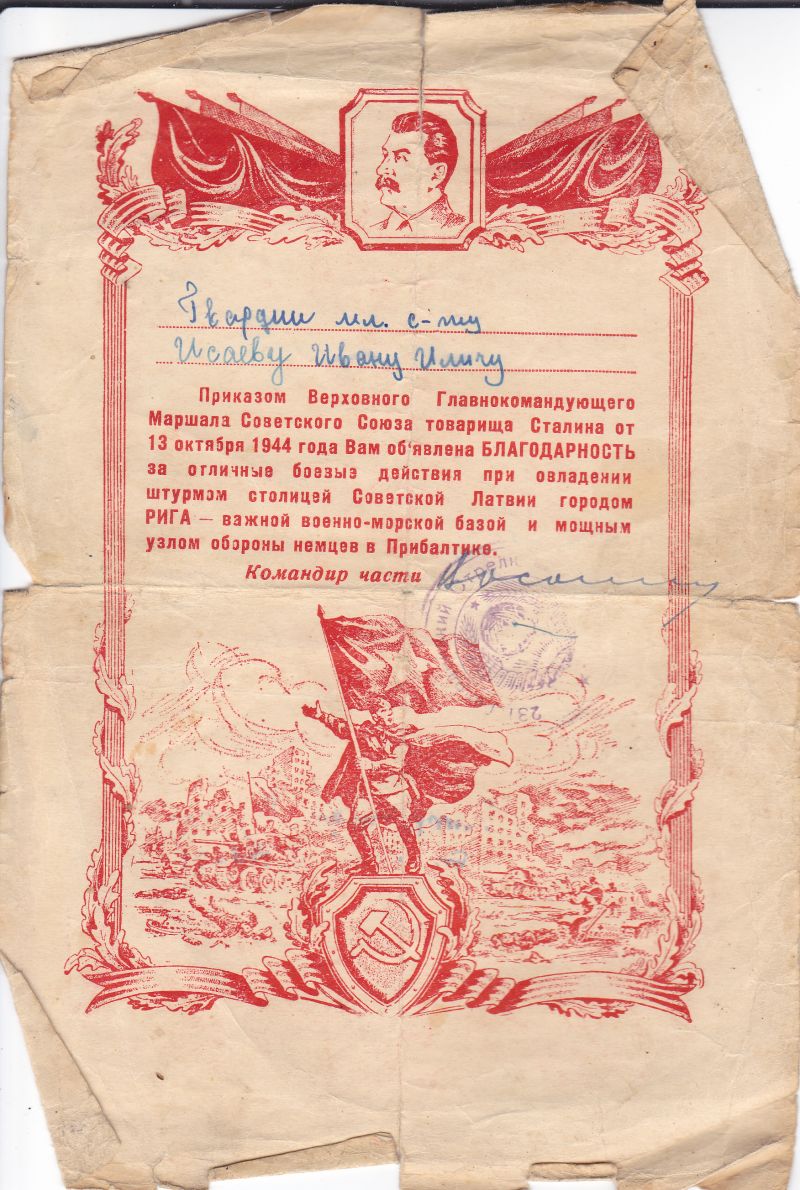 Гвардии мл. с-ту
Исаеву Ивану Иличу
Приказом Верховного Главнокомандующего
Маршала Советского Союза товарища Сталина от
13 октября 1944 года Вам об'явлена БЛАГОДАРНОСТЬ
за отличные боевые действия при овладении
штурмом столицей Советской Латвии городом
РИГА — важной военно-морской базой и мощным
узлом обороны немцев в Прибалтике.
Командир части